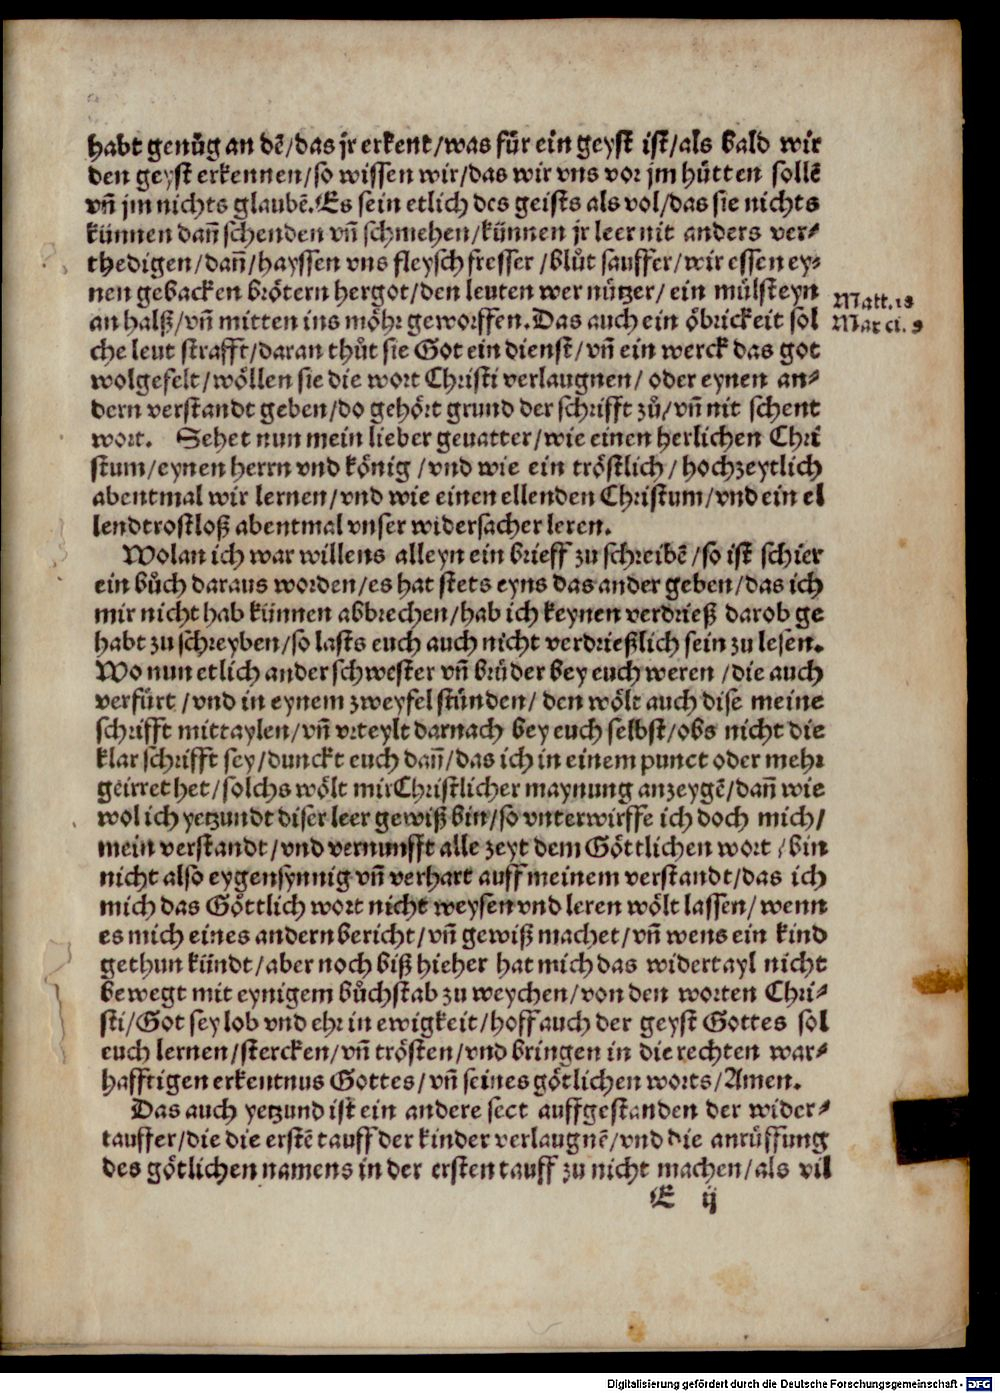 habt genůg an dē/das jr erkent/was für ein geyst ist/als bald wir
den geyst erkennen/so wissen wir/das wir vns vor jm hütten sollē
vñ jm nichts glaubē. Es sein etlich des geists als vol/das sie nichts
künnen dañ schenden vñ schmehen/künnen jr leer nit anders ver-
thedigen/dañ/hayssen vns fleysch fresser/blůt sauffer/wir essen ey-
nen gebacken brötern hergot/den leuten wer nützer/ein mülsteyn
an halß/vñ mitten ins möhr geworffen. Das auch ein öbrickeit sol
Matt. 18
Marci. 9
che leut strafft/daran thůt sie Got ein dienst/vñ ein werck das got
wolgefelt/wöllen sie die wort Christi verlaugnen/oder eynen an-
dern verstandt geben/do gehört grund der schrifft zů/vñ nit schent
wort. Sehet nun mein lieber geuatter/wie einen herlichen Chri
stum/eynen herrn vnd könig/vnd wie ein tröstlich/hochzeytlich
abentmal wir lernen/vnd wie einen ellenden Christum/vnd ein el
lendtrostloß abentmal vnser widersacher leren.
Wolan ich war willens alleyn ein brieff zu schreibē/so ist schier
ein bůch daraus worden/es hat stets eyns das ander geben/das ich
mir nicht hab künnen abbrechen/hab ich keynen verdrieß darob ge
habt zu schreyben/so lasts euch auch nicht verdrießlich sein zu lesen.
Wo nun etlich ander schwester vñ brüder bey euch weren/die auch
verfürt/vnd in eynem zweyfel stünden/den wölt auch dise meine
schrifft mittaylen/vñ vrteylt darnach bey euch selbst/obs nicht die
klar schrifft sey/dunckt euch dañ/das ich in einem punct oder mehr
geirret het/solchs wölt mir Christlicher maynung anzeygē/dañ wie
wol ich yetzundt diser leer gewiß bin/so vnterwirffe ich doch mich/
mein verstandt/vnd vernunfft alle zeyt dem Göttlichen wort/bin
nicht also eygensynnig vñ verhart auff meinem verstandt/das ich
mich das Göttlich wort nicht weysen vnd leren wölt lassen/wenn
es mich eines andern bericht/vñ gewiß machet/vñ wens ein kind
gethun kündt/aber noch biß hieher hat mich das widertayl nicht
bewegt mit eynigem bůchstab zu weychen/von den worten Chri-
sti/Got sey lob vnd ehr in ewigkeit/hoff auch der geyst Gottes sol
euch lernen/stercken/vñ trösten/vnd bringen in die rechten war-
hafftigen erkentnus Gottes/vñ seines götlichen worts/Amen.
Das auch yetzund ist ein andere sect auffgestanden der wider-
tauffer/die die erstē tauff der kinder verlaugnē/vnd die anrüffung
des götlichen namens in der ersten tauff zu nicht machen/als vil
E ij
Digitalisierung gefördert durch die Deutsche Forschungsgemeinschaft - DFG